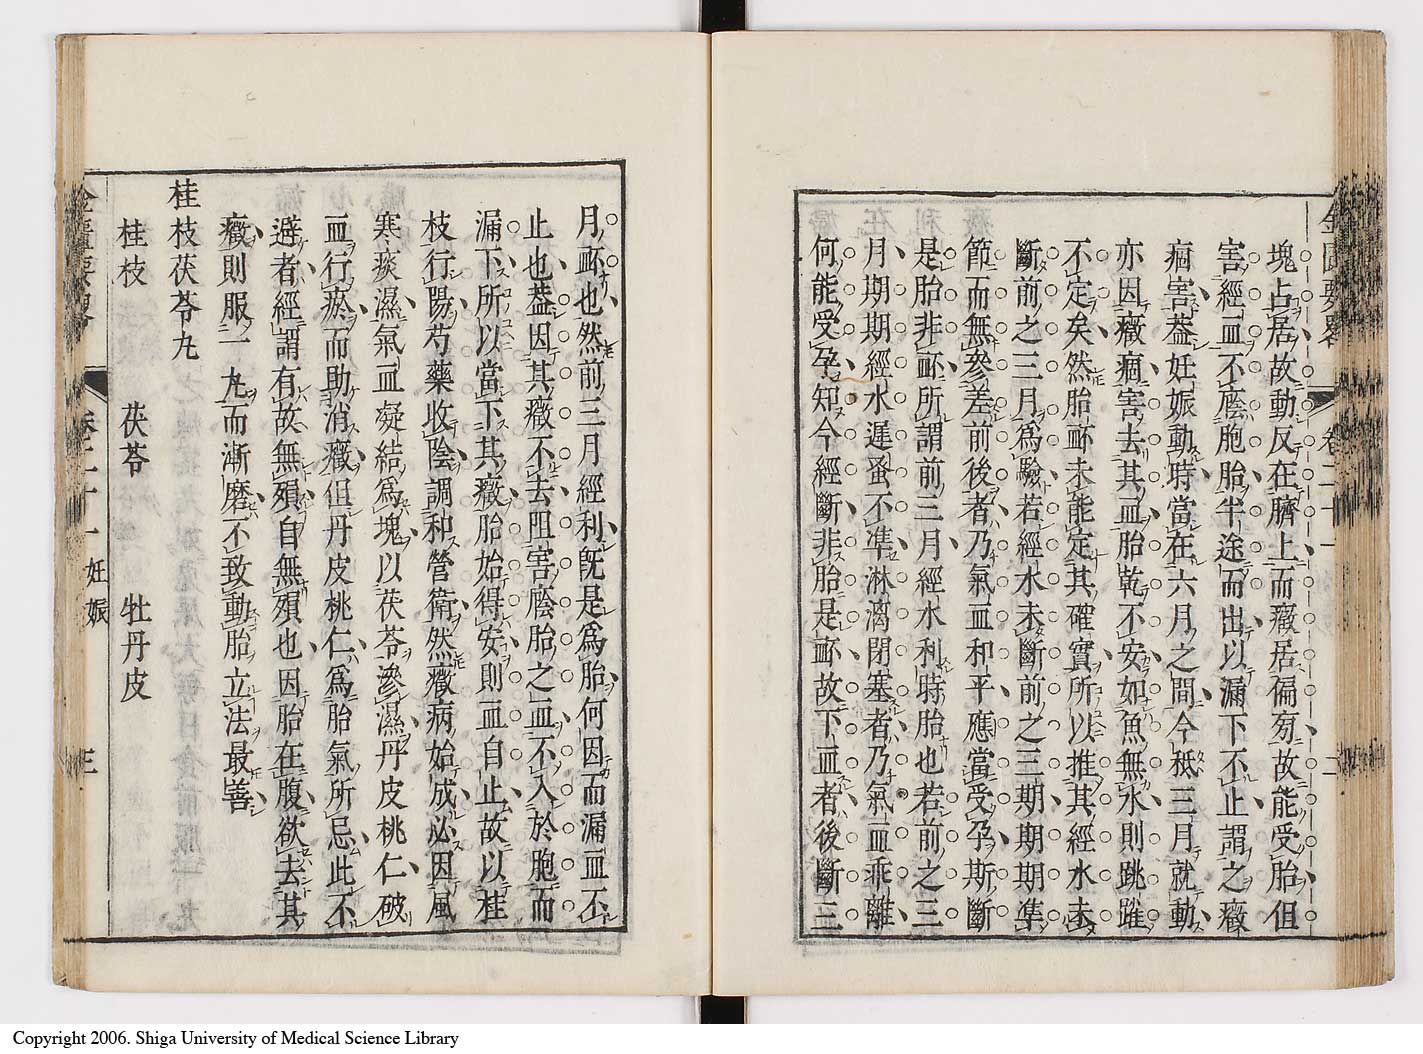 塊占居故動反在臍上而癥居偏旁故能受胎但
害經血不廕胞胎半途而出以漏下不止謂之癥
痼害葢妊娠動時當在六月之間今秪三月就動
亦因癥痼害去其血胎乾不安如魚無水則跳踓
不定矣然胎衃未能定其確實所以推其經水未
斷前之三月爲驗若經水未斷前之三期期期準
節而無參差前後者乃氣血和平應當受孕斯斷
是胎非衃所謂前三月經水利時胎也若前之三
月期期經水遲蚤不準淋漓閉塞者乃氣血乖離
何能受孕知今經斷非胎是衃故下血者後斷三
月衃也然前三月經利旣是爲胎何因而漏血不
止也葢因其癥不去阻害廕胎之血不入於胞而
漏下所以當下其癥胎始得安則血自止故以桂
枝行陽芍藥收陰調和營衛然癥病始成必因風
寒痰濕氣血凝結爲塊以茯苓滲濕丹皮桃仁破
血行瘀而助消癥但丹皮桃仁爲胎氣所忌此不
避者經謂有故無殞自無殞也因胎在腹欲去其
癥則服一丸而漸磨不致動胎立法最善
桂枝茯苓丸
桂枝 茯苓 牡丹皮
卷二十一 妊娠